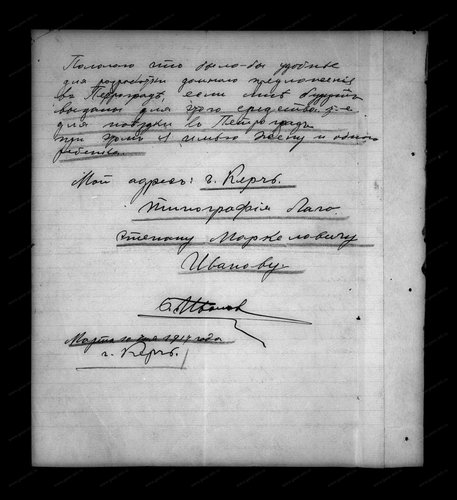 Полагаю что было-бы удобнѣе
для разработки даннаго предложенія
въ Петроградѣ, если мнѣ будутъ
выданы для этого средства
для поѣздки въ Петроградъ
при чемъ я имѣю жену и одного
ребенка.
Мой адресъ: г. Керчь.
Типографія Лаго
Степану Маркеловичу
Иванову.
С. Ивановъ
Марта 10 дня 1917 года
г. Керчь.